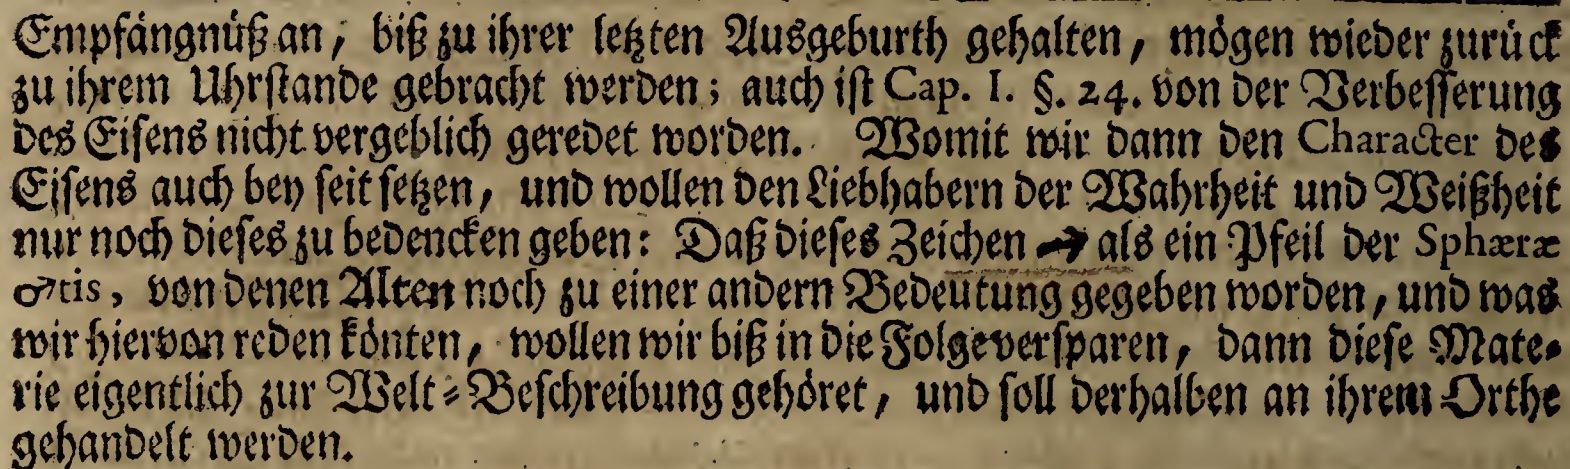 Empfängnüß an, biß zu ihrer letzten Ausgeburth gehalten, mögen wieder zurück
zu ihrem Uhrstande gebracht werden; auch ist Cap. I. §. 24. von der Verbesserung
des Eisens nicht vergeblich geredet worden. Womit wir dann den Character des
Eisens auch bey seit setzen, und wollen den Liebhabern der Wahrheit und Weißheit
nur noch dieses zu bedencken geben: Daß dieses Zeichen → als ein Pfeil der Sphæræ
♂tis, von denen Alten noch zu einer andern Bedeutung gegeben worden, und was
wir hiervon reden könten, wollen wir biß in die Folge versparen, dann diese Mate-
rie eigentlich zur Welt-Beschreibung gehöret, und soll derhalben an ihrem Orthe
gehandelt werden.